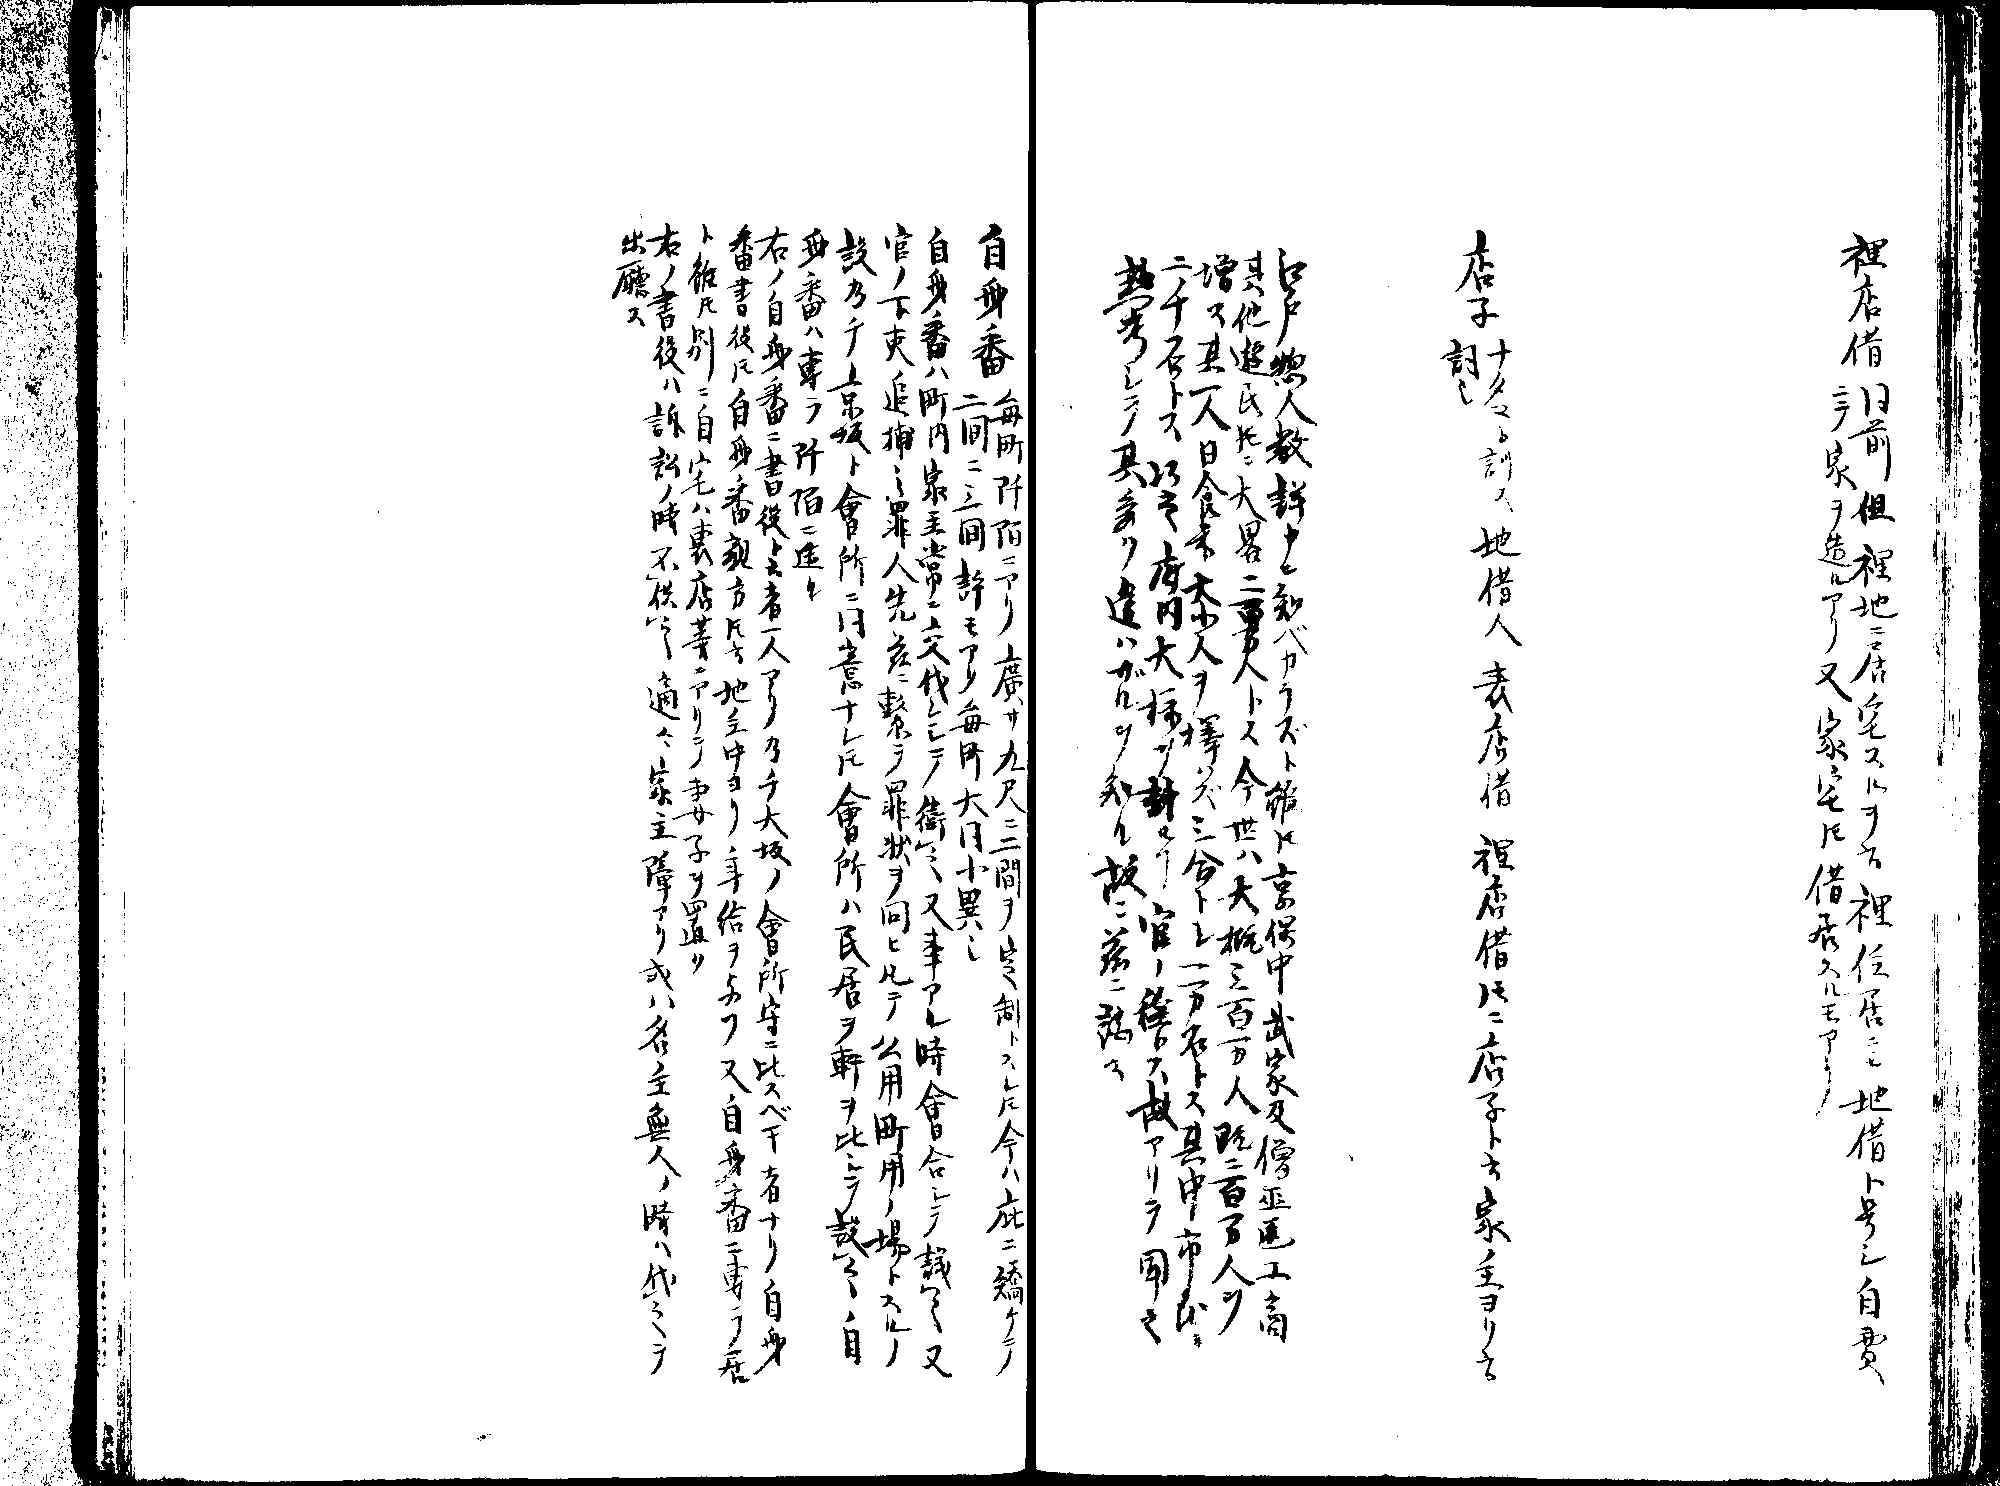 裡店借 旧前但裡地ニ居宅スルヲ云裡住居ニヒ地借ト号シ自費
ニテ家ヲ造ルアリ又家宅モ借居スルモアリ
店子 ナタマコト訓ス地借人表店借裡店借トモニ店子ト云家主ヨリ云
詞也
江戸惣人数詳ニ知ベカラズト雖ドモ享保中武家及僧巫医工商
其他遊民トモニ大畧二百万人トス今世ハ大概三百万人既ニ百万人ヲ
増ス其一人日食米大小人ヲ択バズ三合トシ一万石トス其中市民
二ノ千石トス以之府内大抵ヲ計セリ官ノ秘トス故アリテ聞之
熟考シテ其ノ違ハザルヲ知ル故ニ茲ニ誌ス
自身番 毎町阡陌ニアリ廣サ九尺ニ二間ヲ定制トスレドモ今ハ庇ニ矯ケテ
二間ニ三間許モアリ毎町大同小異也
自身番ハ町内家主常ニ交代シテ衛之又事アル時會合シテ議之又
官ノ下吏追捕之罪人先茲ニ繋テ罪状ヲ問ヒ凡テ公用町用ノ場トスル
設乃チ京坂ト會所ニ同意ナレドモ會所ハ民居ヲ軒ヲ比シテ設之自
身番ハ専ラ阡陌ニ造ル
右ノ自身番ニ書役ト云者一人アリ乃チ大坂ノ會所守ニ比スベキ者ナリ自身
番書役トモ自身番親方トモ云地主中ヨリ年給ヲ与フ又自身番ニ専ラ居
ト雖ドモ別ニ自宅ハ裏店等ニアリテ妻子ヲ置リ
右ノ書役ハ訴訟ノ時不供之適々家主障アリ或ハ名主無人ノ時ハ代之テ
出廳ス